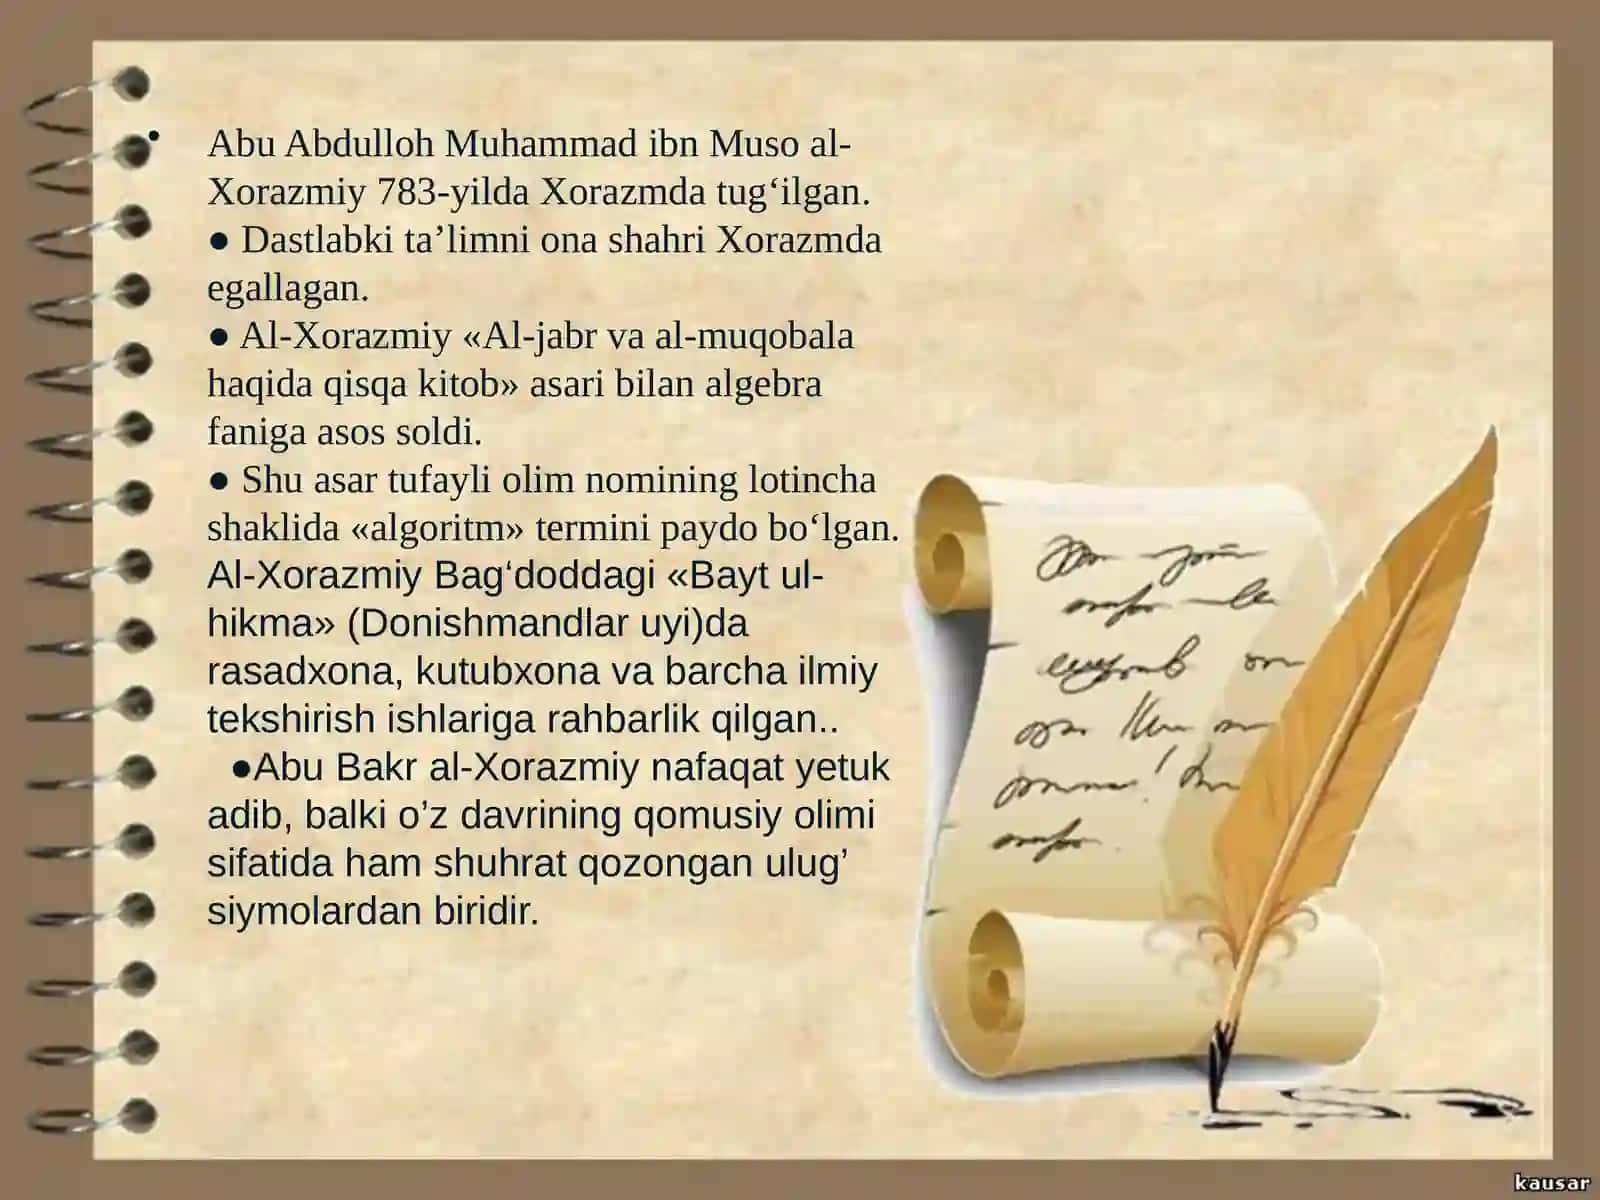 • Abu Abdulloh Muhammad ibn Muso al-
Xorazmiy 783-yilda Xorazmda tug‘ilgan.
● Dastlabki ta’limni ona shahri Xorazmda
egallagan.
● Al-Xorazmiy «Al-jabr va al-muqobala
haqida qisqa kitob» asari bilan algebra
faniga asos soldi.
● Shu asar tufayli olim nomining lotincha
shaklida «algoritm» termini paydo bo‘lgan.
Al-Xorazmiy Bag‘doddagi «Bayt ul-
hikma» (Donishmandlar uyi)da
rasadxona, kutubxona va barcha ilmiy
tekshirish ishlariga rahbarlik qilgan..
●Abu Bakr al-Xorazmiy nafaqat yetuk
adib, balki o’z davrining qomusiy olimi
sifatida ham shuhrat qozongan ulug’
siymolardan biridir.
kausar